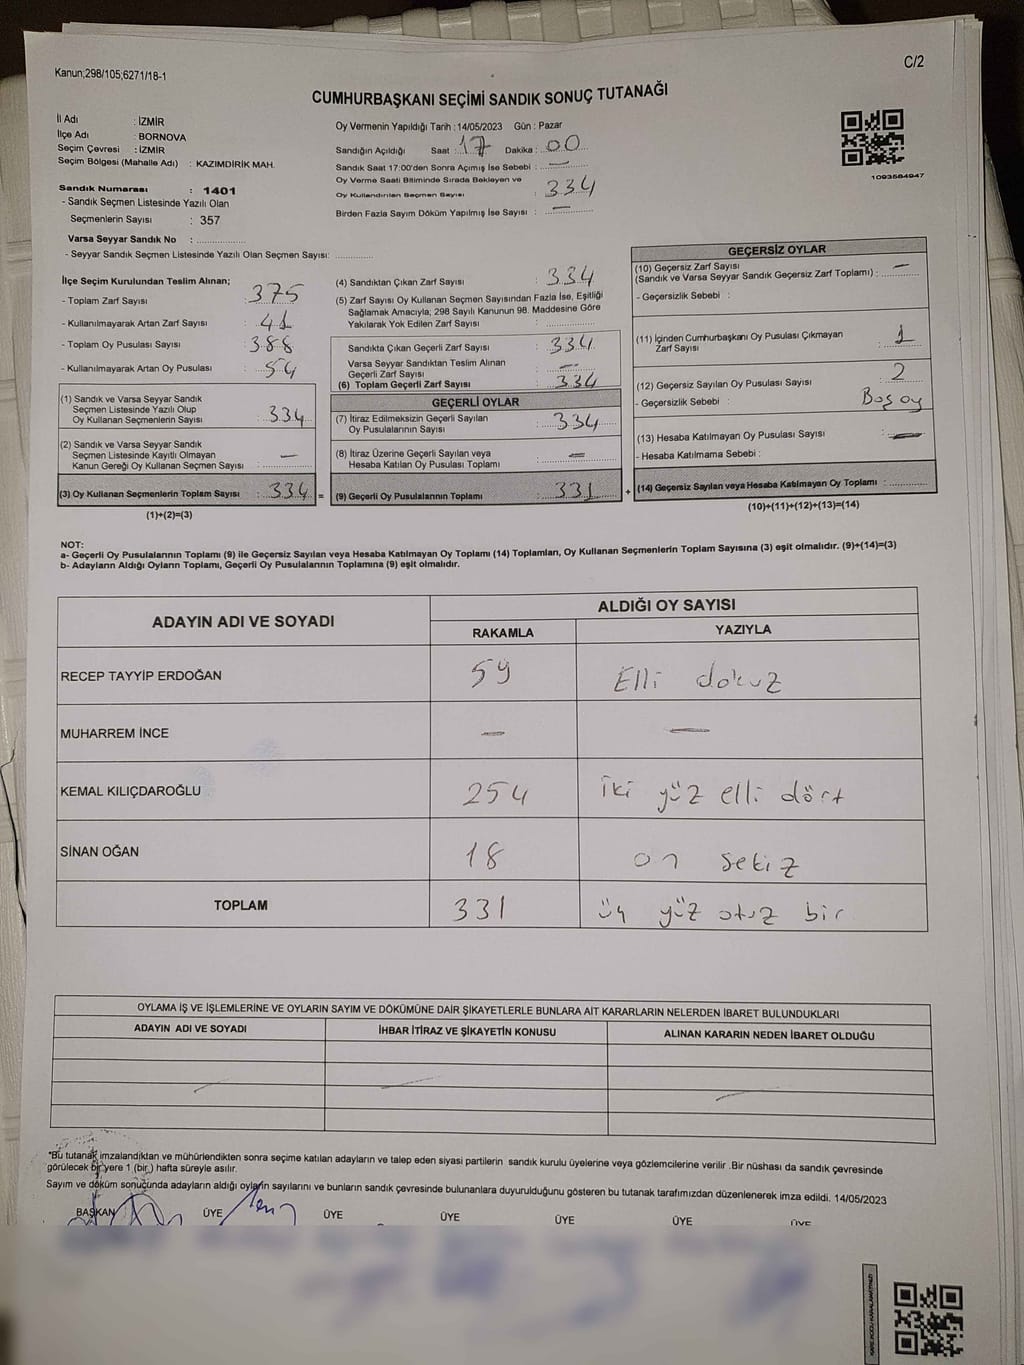 Kanun;298/105;6271/18-1
C/2
CUMHURBAŞKANI SEÇİMİ SANDIK SONUÇ TUTANAĞI
İl Adı : İZMİR
İlçe Adı : BORNOVA
Seçim Çevresi : İZMİR
Seçim Bölgesi (Mahalle Adı) : KAZIMDİRİK MAH.
Sandık Numarası : 1401
- Sandık Seçmen Listesinde Yazılı Olan
Seçmenlerin Sayısı : 357
Varsa Seyyar Sandık No :
- Seyyar Sandık Seçmen Listesinde Yazılı Olan Seçmen Sayısı:
Oy Vermenin Yapıldığı Tarih : 14/05/2023 Gün : Pazar
Sandığın Açıldığı Saat : 17 Dakika : 00
Sandık Saat 17:00'den Sonra Açımış İse Sebebi : —
Oy Verme Saati Bitiminde Sırada Bekleyen ve
Oy Kullandırılan Seçmen Sayısı : 334
Birden Fazla Sayım Döküm Yapılmış İse Sayısı : —
1093584947
İlçe Seçim Kurulundan Teslim Alınan;
- Toplam Zarf Sayısı : 375
- Kullanılmayarak Artan Zarf Sayısı : 41
- Toplam Oy Pusulası Sayısı : 388
- Kullanılmayarak Artan Oy Pusulası : 54
(1) Sandık ve Varsa Seyyar Sandık
Seçmen Listesinde Yazılı Olup
Oy Kullanan Seçmenlerin Sayısı : 334
(2) Sandık ve Varsa Seyyar Sandık
Seçmen Listesinde Kayıtlı Olmayan
Kanun Gereği Oy Kullanan Seçmen Sayısı : —
(3) Oy Kullanan Seçmenlerin Toplam Sayısı : 334 =
(1)+(2)=(3)
(4) Sandıktan Çıkan Zarf Sayısı : 334
(5) Zarf Sayısı Oy Kullanan Seçmen Sayısından Fazla İse, Eşitliği
Sağlamak Amacıyla; 298 Sayılı Kanunun 98. Maddesine Göre
Yakılarak Yok Edilen Zarf Sayısı :
Sandıkta Çıkan Geçerli Zarf Sayısı : 334
Varsa Seyyar Sandıktan Teslim Alınan
Geçerli Zarf Sayısı : —
(6) Toplam Geçerli Zarf Sayısı : 334
GEÇERLİ OYLAR
(7) İtiraz Edilmeksizin Geçerli Sayılan
Oy Pusulalarının Sayısı : 334
(8) İtiraz Üzerine Geçerli Sayılan veya
Hesaba Katılan Oy Pusulası Toplamı : —
(9) Geçerli Oy Pusulalarının Toplamı : 331 +
GEÇERSİZ OYLAR
(10) Geçersiz Zarf Sayısı
(Sandık ve Varsa Seyyar Sandık Geçersiz Zarf Toplamı) : —
- Geçersizlik Sebebi :
(11) İçinden Cumhurbaşkanı Oy Pusulası Çıkmayan
Zarf Sayısı : 1
(12) Geçersiz Sayılan Oy Pusulası Sayısı : 2
- Geçersizlik Sebebi : Boş oy
(13) Hesaba Katılmayan Oy Pusulası Sayısı : —
- Hesaba Katılmama Sebebi :
(14) Geçersiz Sayılan veya Hesaba Katılmayan Oy Toplamı :
(10)+(11)+(12)+(13)=(14)
NOT:
a- Geçerli Oy Pusulalarının Toplamı (9) ile Geçersiz Sayılan veya Hesaba Katılmayan Oy Toplamı (14) Toplamları, Oy Kullanan Seçmenlerin Toplam Sayısına (3) eşit olmalıdır. (9)+(14)=(3)
b- Adayların Aldığı Oyların Toplamı, Geçerli Oy Pusulalarının Toplamına (9) eşit olmalıdır.
ADAYIN ADI VE SOYADI ALDIĞI OY SAYISI
RAKAMLA YAZIYLA
RECEP TAYYİP ERDOĞAN 59 Elli dokuz
MUHARREM İNCE — —
KEMAL KILIÇDAROĞLU 254 iki yüz elli dört
SİNAN OĞAN 18 on sekiz
TOPLAM 331 üç yüz otuz bir
OYLAMA İŞ VE İŞLEMLERİNE VE OYLARIN SAYIM VE DÖKÜMÜNE DAİR ŞİKAYETLERLE BUNLARA AİT KARARLARIN NELERDEN İBARET BULUNDUKLARI
ADAYIN ADI VE SOYADI İHBAR İTİRAZ VE ŞİKAYETİN KONUSU ALINAN KARARIN NEDEN İBARET OLDUĞU
"Bu tutanak imzalandıktan ve mühürlendikten sonra seçime katılan adayların ve talep eden siyasi partilerin sandık kurulu üyelerine veya gözlemcilerine verilir .Bir nüshası da sandık çevresinde
görülecek bir yere 1 (bir) hafta süreyle asılır.
Sayım ve döküm sonucunda adayların aldığı oyların sayılarını ve bunların sandık çevresinde bulunanlara duyurulduğunu gösteren bu tutanak tarafımızdan düzenlenerek imza edildi. 14/05/2023
BAŞKAN ÜYE ÜYE ÜYE ÜYE ÜYE ÜYE